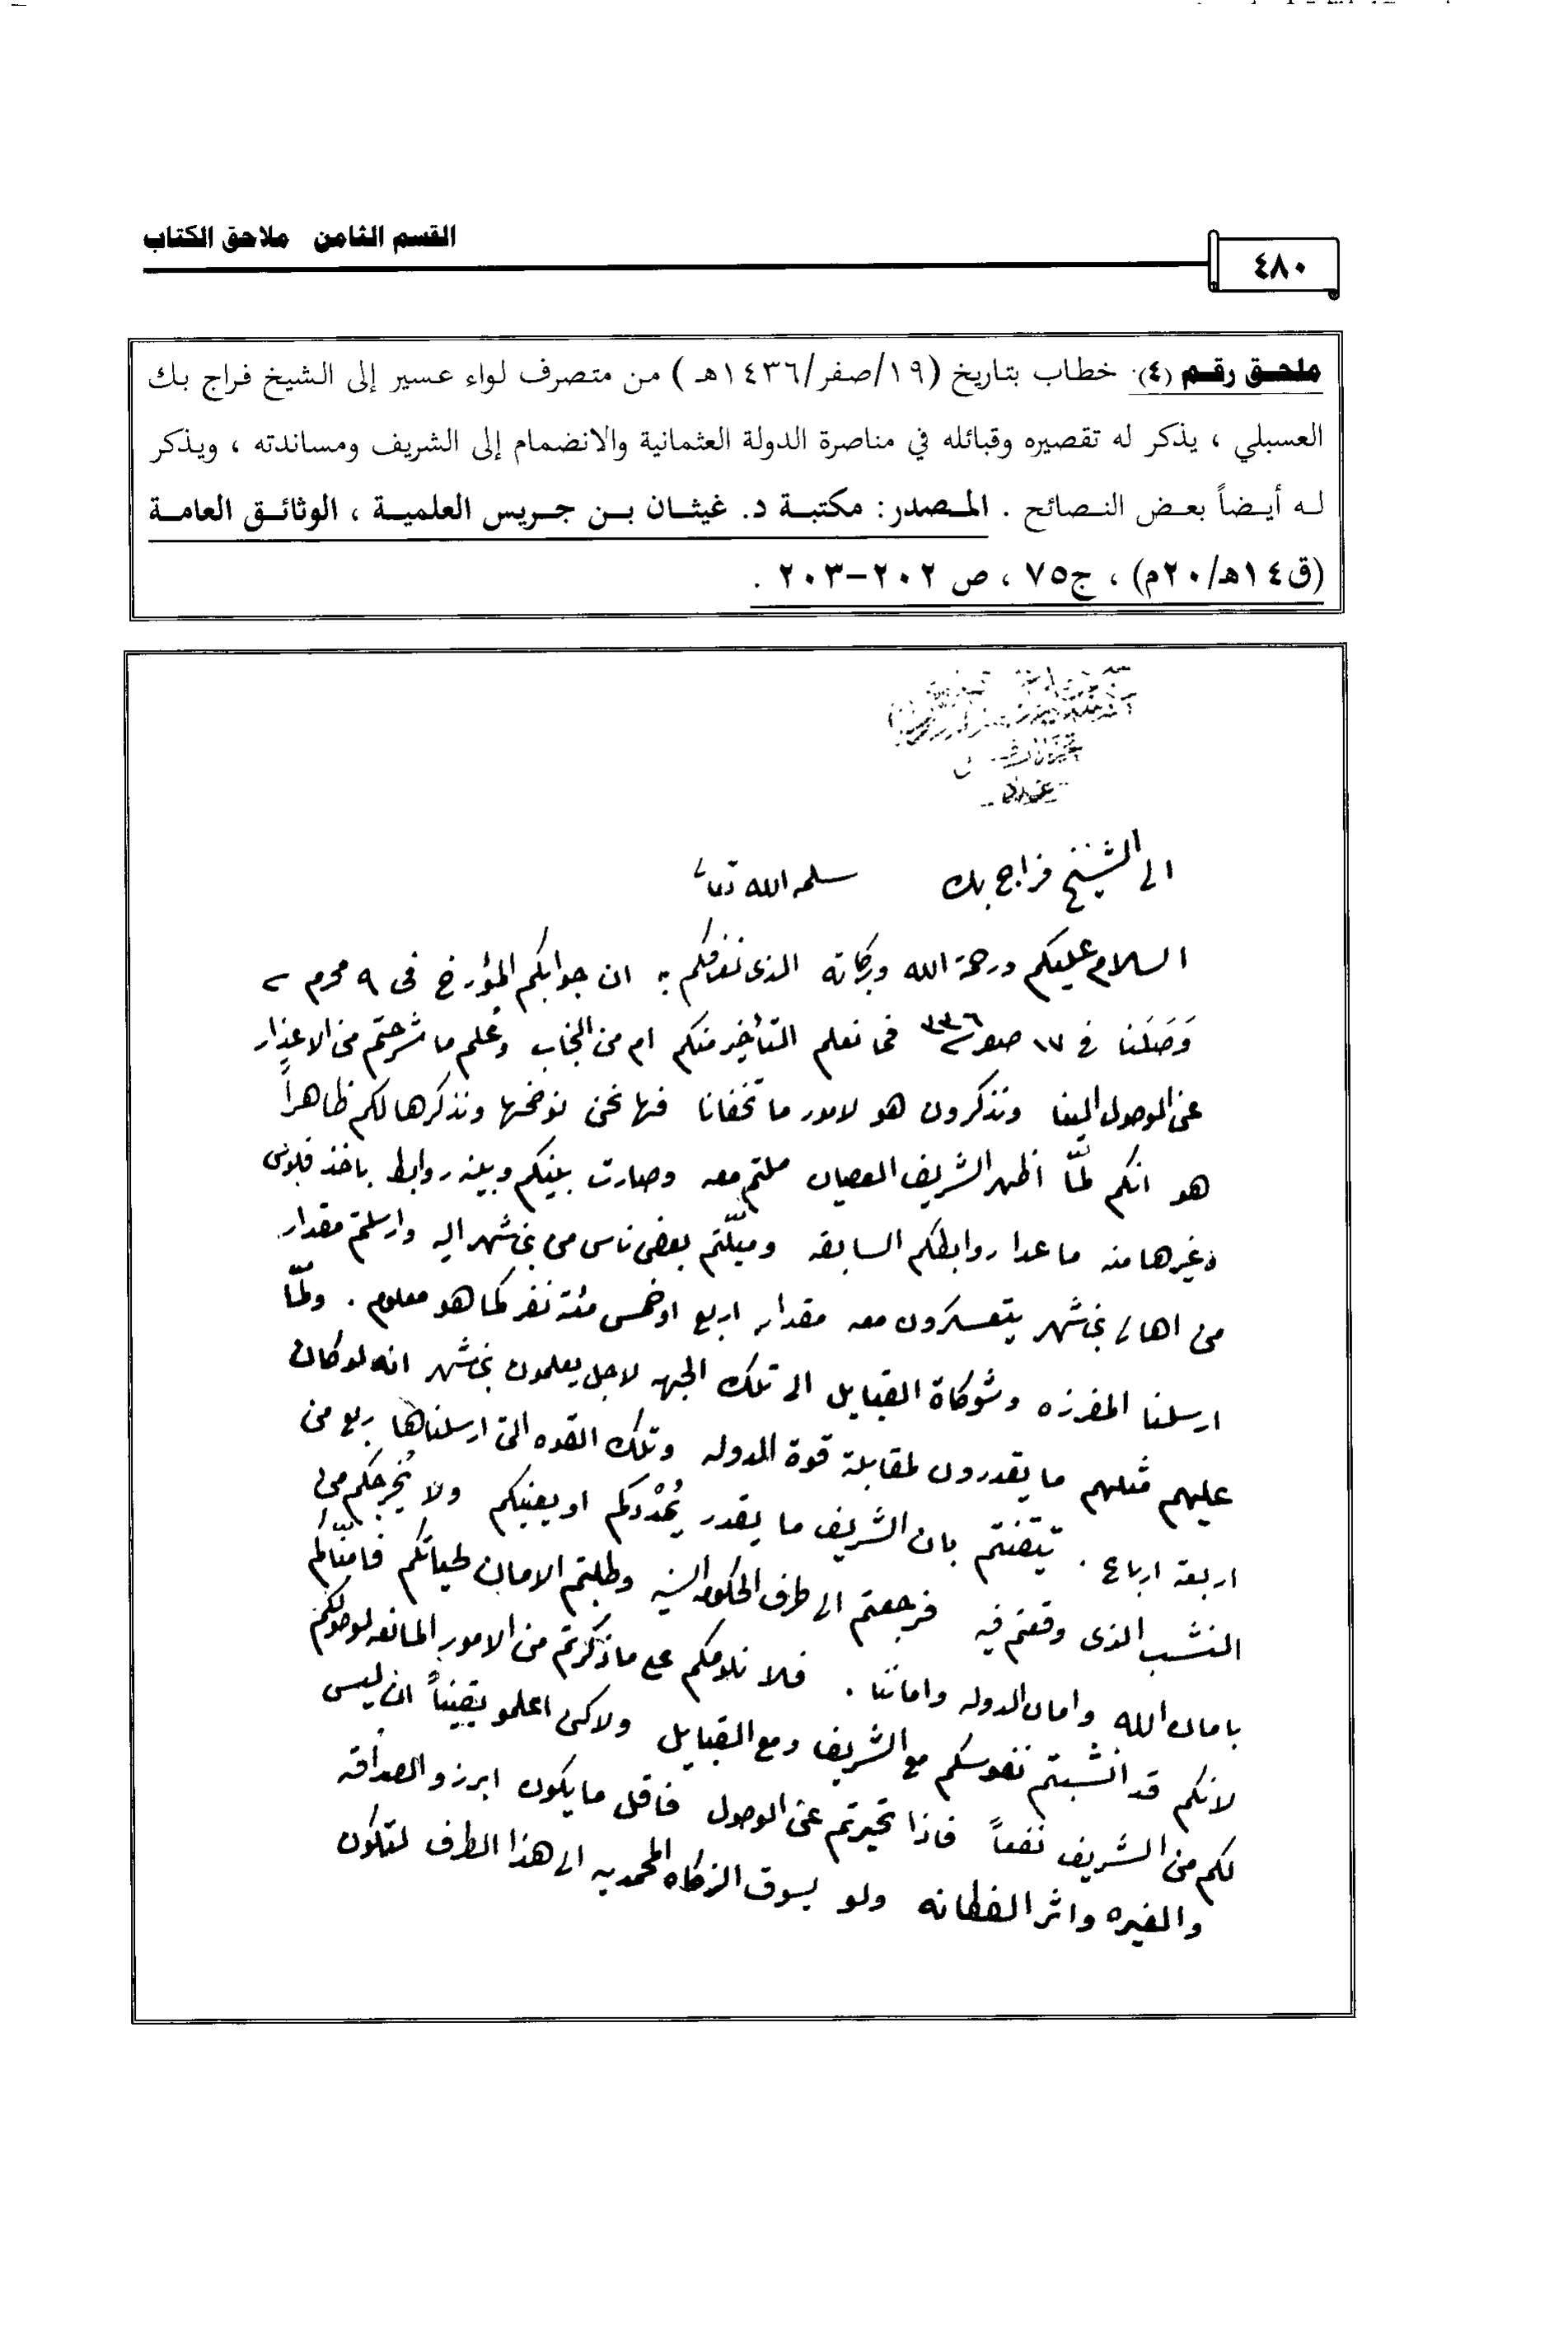 القسم الثامن   ملاحق الكتاب
٤٨٠
ملحق رقم (٤). خطاب بتاريخ (١٩/صفر/١٤٣٦هـ) من متصرف لواء عسير إلى الشيخ فراج بك
العسبلي ، يذكر له تقصيره وقبائله في مناصرة الدولة العثمانية والانضمام إلى الشريف ومساندته ، ويذكر
له أيضاً بعض النصائح . المصدر: مكتبة د. غيثان بن جريس العلمية ، الوثائق العامة
(ق١٤هـ/٢٠م) ، ج٧٥ ، ص ٢٠٢-٢٠٣ .
الى الشيخ فراج بك   سلمه الله تعالى
السلام عليكم ورحمة الله وبركاته الذى نعرفكم به ان جوابكم المؤرخ فى ٩ محرم
وَصَلَنا فى ١٧ صفر ٣٣٦ فما نعلم التأخير منكم ام من النجاب وعُلم ما شرحتم من الاعذار
عن الوصول الينا وتذكرون هو لامور ما تخفانا فها نحن نوضحها ونذكرها لكم ظاهراً
هو انكم لمّا اظهر الشريف العصيان ملتم معه وصارت بينكم وبينه روابط باخذ فلوس
وغيرها منه ماعدا روابطكم السابقه وميّلتم بعض ناس من بنى شهر اليه وارسلتم مقدار
من اهالى بنى شهر يتعسكرون معه مقدار اربع او خمس مئة نفر كما هو معلوم . ولمّا
ارسلنا المفرزه وشوكاة القبايل الى تلك الجهه لاجل يعلمون بنى شهر انه لو كان
عليهم مثلهم ما يقدرون لمقابلة قوة الدوله وتلك القوه التى ارسلناها ربع من
اربعة ارباع . تيقنتم بان الشريف ما يقدر يُمْدِدكم او يعينكم ولا يُخرجكم من
النشب الذى وقعتم فيه فرجعتم الى طرف الحكومة السنيه وطلبتم الامان لحياتكم فامنّاكم
بامان الله وامان الدوله واماننا . فلا نلامكم على ما ذكرتم من الامور المانعه لوصولكم
لانكم قد انشبتم نفوسكم مع الشريف ومع القبايل ولاكن اعلمو يقيناً ان ليس
لكم من الشريف نفعاً فاذا تحيرتم عن الوصول فاقل ما يكون ابرزو الصداقه
والغيره واثر الفطانه ولو بسوق الزكاه المحمديه الى هذا الطرف لتكون